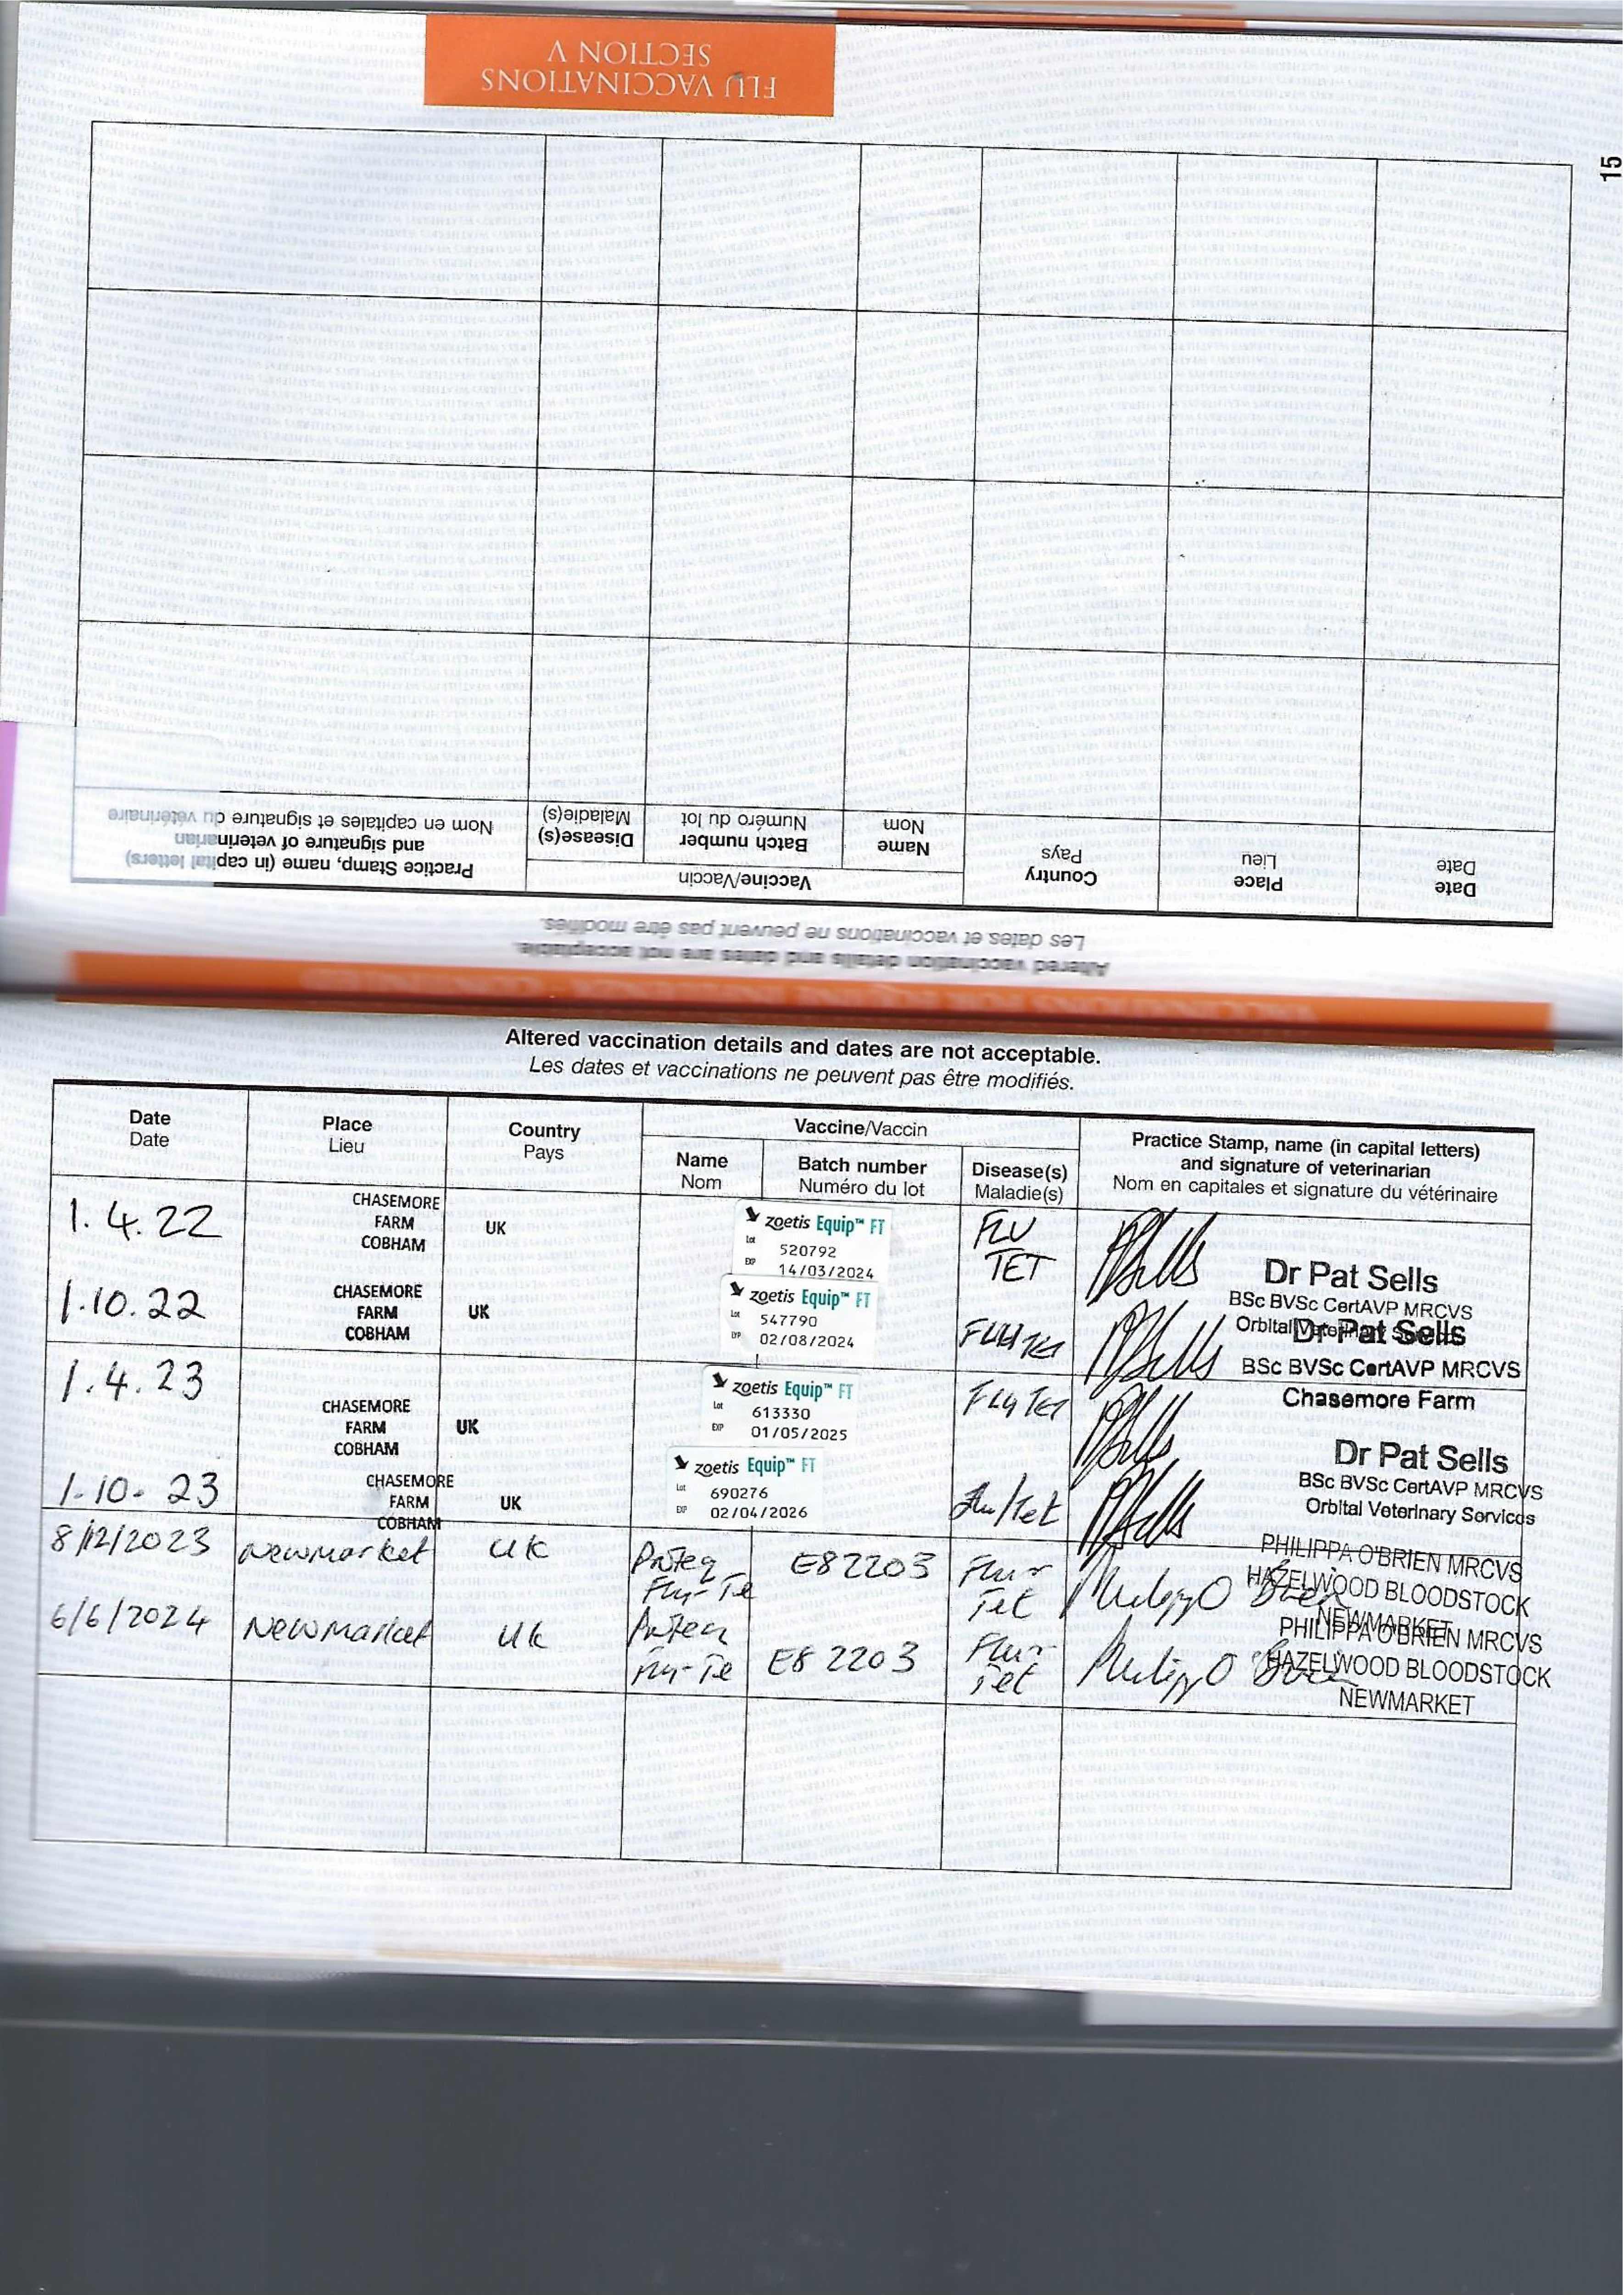 FLU VACCINATIONS
SECTION V
15
Practice Stamp, name (in capital letters)
and signature of veterinarian
Nom en capitales et signature du vétérinaire
Vaccine/Vaccin
Disease(s)
Maladie(s)
Batch number
Numéro du lot
Name
Nom
Country
Pays
Place
Lieu
Date
Date
Altered vaccination details and dates are not acceptable.
Les dates et vaccinations ne peuvent pas être modifiés.
Altered vaccination details and dates are not acceptable.
Les dates et vaccinations ne peuvent pas être modifiés.
Date
Date
Place
Lieu
Country
Pays
Vaccine/Vaccin
Name
Nom
Batch number
Numéro du lot
Disease(s)
Maladie(s)
Practice Stamp, name (in capital letters)
and signature of veterinarian
Nom en capitales et signature du vétérinaire
1.4.22
CHASEMORE
FARM
COBHAM
UK
zoetis Equip™ FT
Lot 520792
EXP 14/03/2024
FLU
TET
Dr Pat Sells
BSc BVSc CertAVP MRCVS
Orbital
1.10.22
CHASEMORE
FARM
COBHAM
UK
zoetis Equip™ FT
Lot 547790
EXP 02/08/2024
FLU TET
Dr Pat Sells
BSc BVSc CertAVP MRCVS
Chasemore Farm
1.4.23
CHASEMORE
FARM
COBHAM
UK
zoetis Equip™ FT
Lot 613330
EXP 01/05/2025
FLU TET
Dr Pat Sells
BSc BVSc CertAVP MRCVS
Orbital Veterinary Services
1-10-23
CHASEMORE
FARM
COBHAM
UK
zoetis Equip™ FT
Lot 690276
EXP 02/04/2026
Flu/Tet
8/12/2023
Newmarket
UK
Proteq
Flu-Te
E82203
Flu
Tet
PHILIPPA O'BRIEN MRCVS
HAZELWOOD BLOODSTOCK
NEWMARKET
6/6/2024
Newmarket
UK
Proteq
Flu-Te
E82203
Flu
Tet
PHILIPPA O'BRIEN MRCVS
HAZELWOOD BLOODSTOCK
NEWMARKET